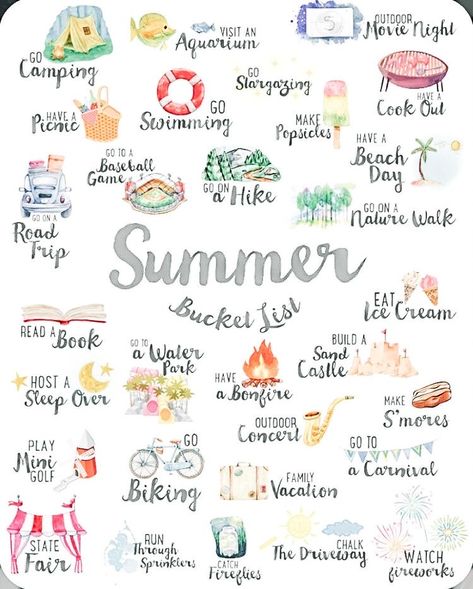 GO
Camping
VISIT AN
Aquarium
OUTDOOR
Movie Night
5
HAVE A
Picnic
GO
Swimming
GO
Stargazing
MAKE
Popsicles
HAVE A
Cook Out
GO ON A
Road
Trip
GO TO A
Baseball
Game
GO ON
a Hike
HAVE A
Beach
Day
GO ON A
Nature Walk
Summer
Bucket List
READ A
Book
GO TO
a Water
Park
HAVE
a Bonfire
EAT
Ice Cream
BUILD A
Sand
Castle
HOST A
Sleep Over
OUTDOOR
Concert
MAKE
S'mores
PLAY
Mini
GOLF
GO
Biking
FAMILY
Vacation
GO TO
a Carnival
STATE
Fair
RUN
Through
Sprinklers
CATCH
Fireflies
CHALK
The Driveway
WATCH
fireworks